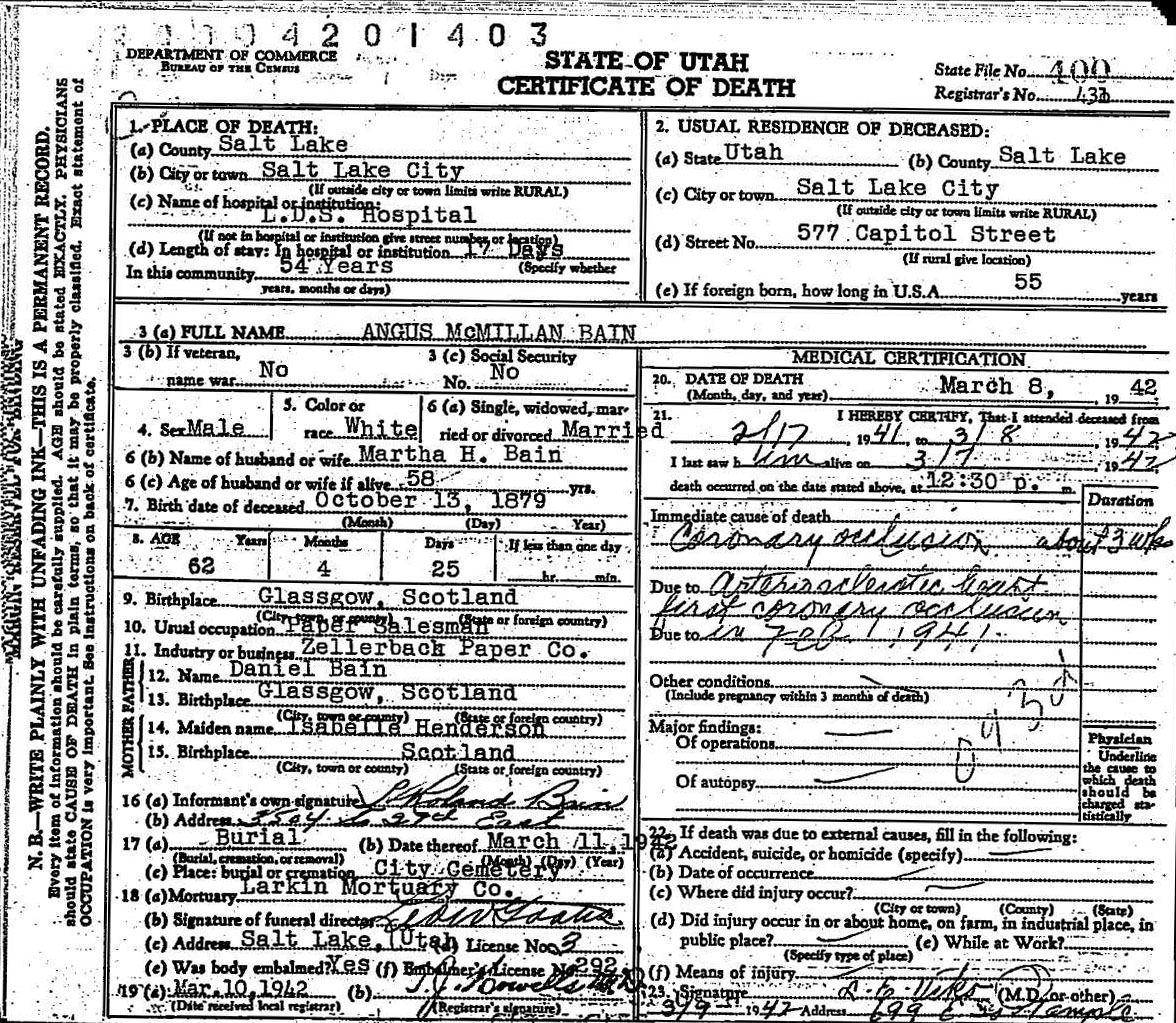 4 2 0 1 4 0 3
DEPARTMENT OF COMMERCE
BUREAU OF THE CENSUS
STATE OF UTAH
CERTIFICATE OF DEATH
State File No. 400
Registrar's No.
N. B.—WRITE PLAINLY WITH UNFADING INK—THIS IS A PERMANENT RECORD.
Every item of information should be carefully supplied. AGE should be stated EXACTLY. PHYSICIANS
should state CAUSE OF DEATH in plain terms, so that it may be properly classified. Exact statement of
OCCUPATION is very important. See instructions on back of certificate.
1. PLACE OF DEATH:
(a) County Salt Lake
(b) City or town Salt Lake City
(If outside city or town limits write RURAL)
(c) Name of hospital or institution:
L.D.S. Hospital
(If not in hospital or institution give street number or location)
(d) Length of stay: In hospital or institution 17 Days
In this community 54 Years (Specify whether
years, months or days)
2. USUAL RESIDENCE OF DECEASED:
(a) State Utah (b) County Salt Lake
(c) City or town Salt Lake City
(If outside city or town limits write RURAL)
(d) Street No. 577 Capitol Street
(If rural give location)
(e) If foreign born, how long in U.S.A. 55 years
3 (a) FULL NAME ANGUS McMILLAN BAIN
3 (b) If veteran, name war No
3 (c) Social Security No. No
4. Sex Male
5. Color or race White
6 (a) Single, widowed, married or divorced Married
6 (b) Name of husband or wife Martha H. Bain
6 (c) Age of husband or wife if alive 58 yrs.
7. Birth date of deceased October 13, 1879
(Month) (Day) Year)
8. AGE Years Months Days If less than one day
62 4 25 hr. min.
9. Birthplace Glassgow, Scotland
(City, town or county) (State or foreign country)
10. Usual occupation Paper Salesman
11. Industry or business Zellerback Paper Co.
FATHER
12. Name Daniel Bain
13. Birthplace Glassgow, Scotland
(City, town or county) (State or foreign country)
MOTHER
14. Maiden name Isabella Henderson
15. Birthplace Scotland
(City, town or county) (State or foreign country)
16 (a) Informant's own signature Roland Bain
(b) Address So 27th East
17 (a) Burial (b) Date thereof March 11, 1942
(Burial, cremation, or removal) (Month) (Day) (Year)
(c) Place: burial or cremation City Cemetery
18 (a) Mortuary Larkin Mortuary Co.
(b) Signature of funeral director
(c) Address Salt Lake, Utah (d) License No. 3
(e) Was body embalmed? Yes (f) Embalmer's License No. 292
19 (a) Mar. 10, 1942 (b)
(Date received local registrar) (Registrar's signature)
MEDICAL CERTIFICATION
20. DATE OF DEATH March 8, 19 42
(Month, day, and year)
21. I HEREBY CERTIFY, That I attended deceased from
2/17, 1941 to 3/8 1942
I last saw him alive on 3/7 1942
death occurred on the date stated above, at 12:30 p. m.
Duration
Immediate cause of death
Coronary occlusion about 3 wks
Due to Arteriosclerotic heart
first coronary occlusion
Due to in Feb 1941.
Other conditions
(Include pregnancy within 3 months of death)
Major findings:
Of operations
Of autopsy
Physician
Underline
the cause to
which death
should be
charged sta-
tistically
22. If death was due to external causes, fill in the following:
(a) Accident, suicide, or homicide (specify)
(b) Date of occurrence
(c) Where did injury occur?
(City or town) (County) (State)
(d) Did injury occur in or about home, on farm, in industrial place, in
public place? (e) While at Work?
(Specify type of place)
(f) Means of injury
23. Signature (M.D. or other)
3/9 1942 Address 699 E. So Temple